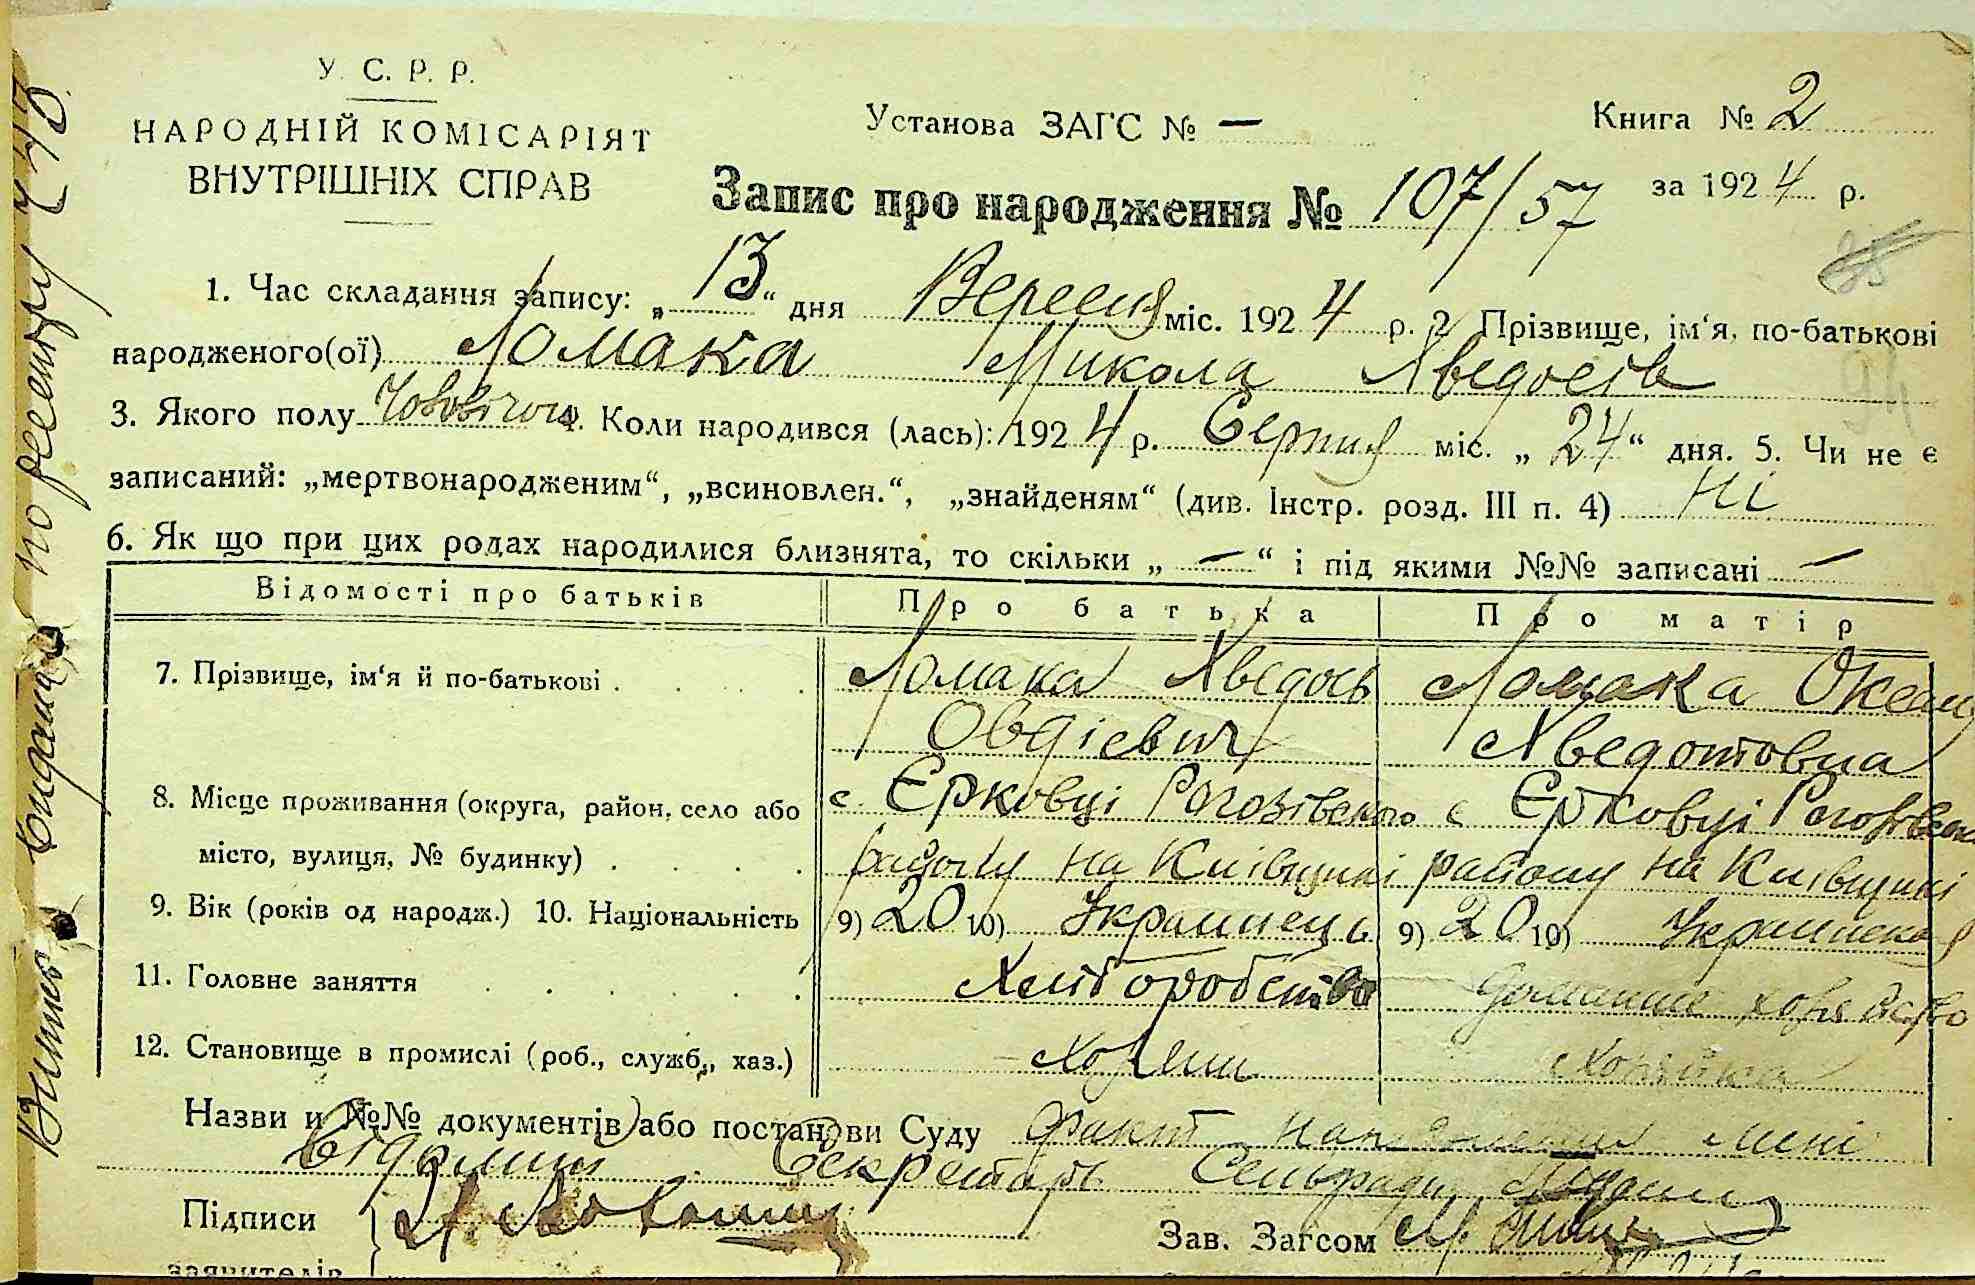 У. С. Р. Р.
НАРОДНІЙ КОМІСАРІЯТ
ВНУТРІШНІХ СПРАВ
Установа ЗАГС № —
Книга № 2
за 1924 р.
Запис про народження № 107/57
1. Час складання запису: „13“ дня Вересня міс. 1924 р. 2. Прізвище, ім‘я, по-батькові
народженого(ої) Ломака Микола Хведосів
3. Якого полу Чоловічого 4. Коли народився (лась): 1924 р. Серпня міс. „24“ дня. 5. Чи не є
записаний: „мертвонародженим“, „всиновлен.“, „знайденям“ (див. Інстр. розд. III п. 4) Ні
6. Як що при цих родах народилися близнята, то скільки „—“ і під якими №№ записані —
Відомості про батьків Про батька Про матір
7. Прізвище, ім‘я й по-батькові Ломака Хведось Ломака
Овдієвич Хведотовна
8. Місце проживання (округа, район, село або с. Єрковці Рогозівського с Єрковці
місто, вулиця, № будинку) району на Київщині району на Київщині
9. Вік (років од народж.) 10. Національність 9) 20 10) Українець 9) 20 10) Українська
11. Головне заняття Хліборобство домашнє
12. Становище в промислі (роб., служб., хаз.) Хозяїн Хозяйка
Назви и №№ документів або постанови Суду Факт народження мені
відомий Секретарь Сельради
Підписи
Зав. Загсом
заявителів